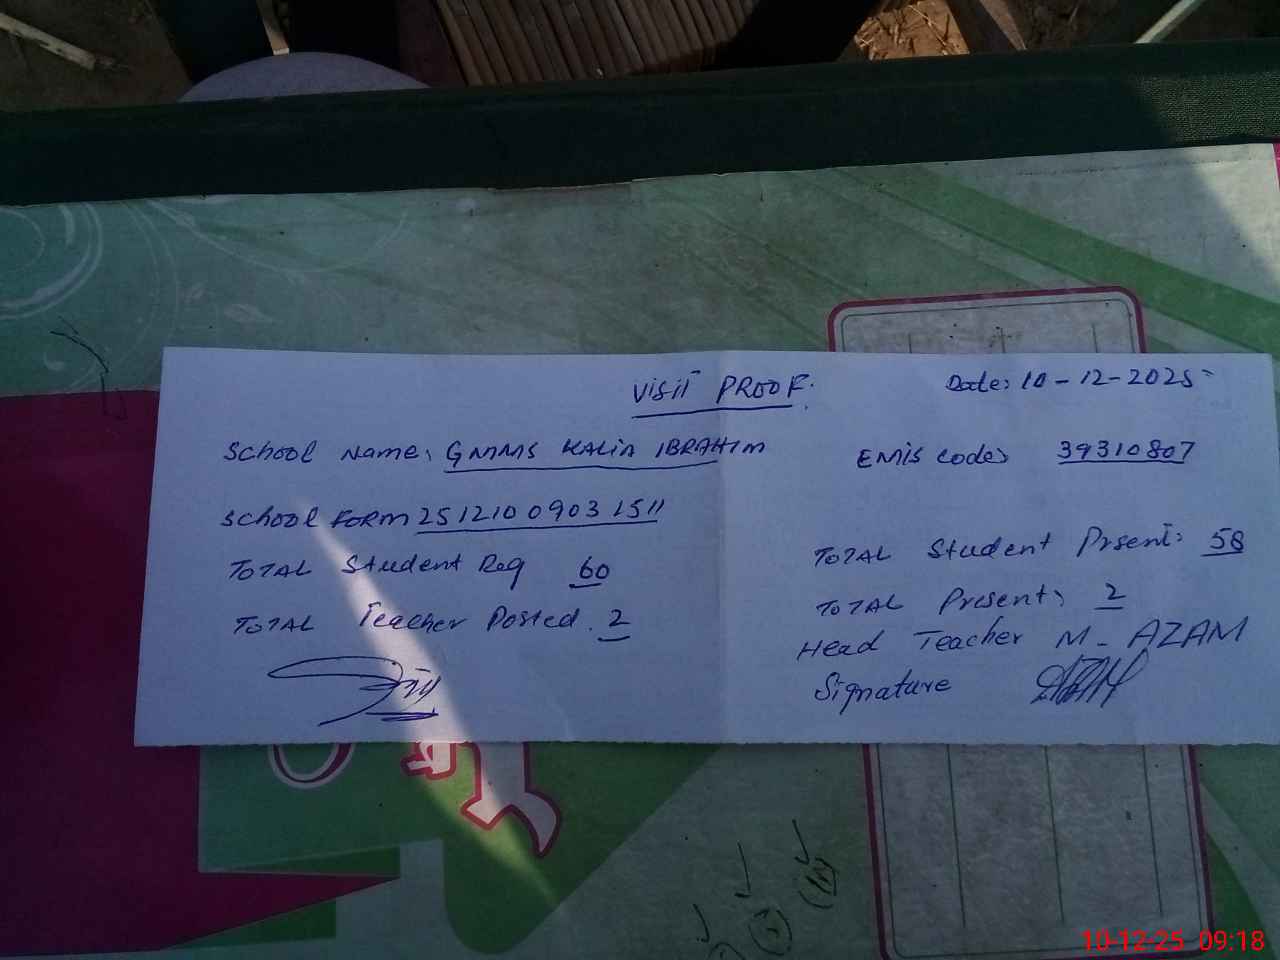 VISIT PROOF.
Date: 10-12-2025
School Name: GMMS KALIA IBRAHIM
EMIS code: 39310807
School FORM 25121009031511
TOTAL Student Prsent: 58
TOTAL Student Reg 60
TOTAL Present: 2
TOTAL Teacher Posted. 2
Head Teacher M- AZAM
Signature
10-12-25 09:18